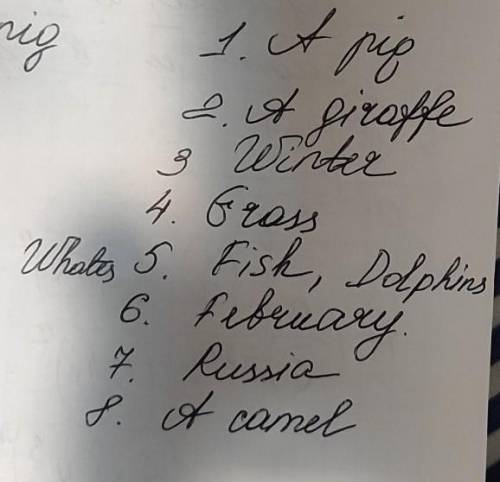 nig 1. A pig
2. A giraffe
3 Winter
4. Grass
Whales 5. Fish, Dolphins
6. February.
7. Russia
8. A camel